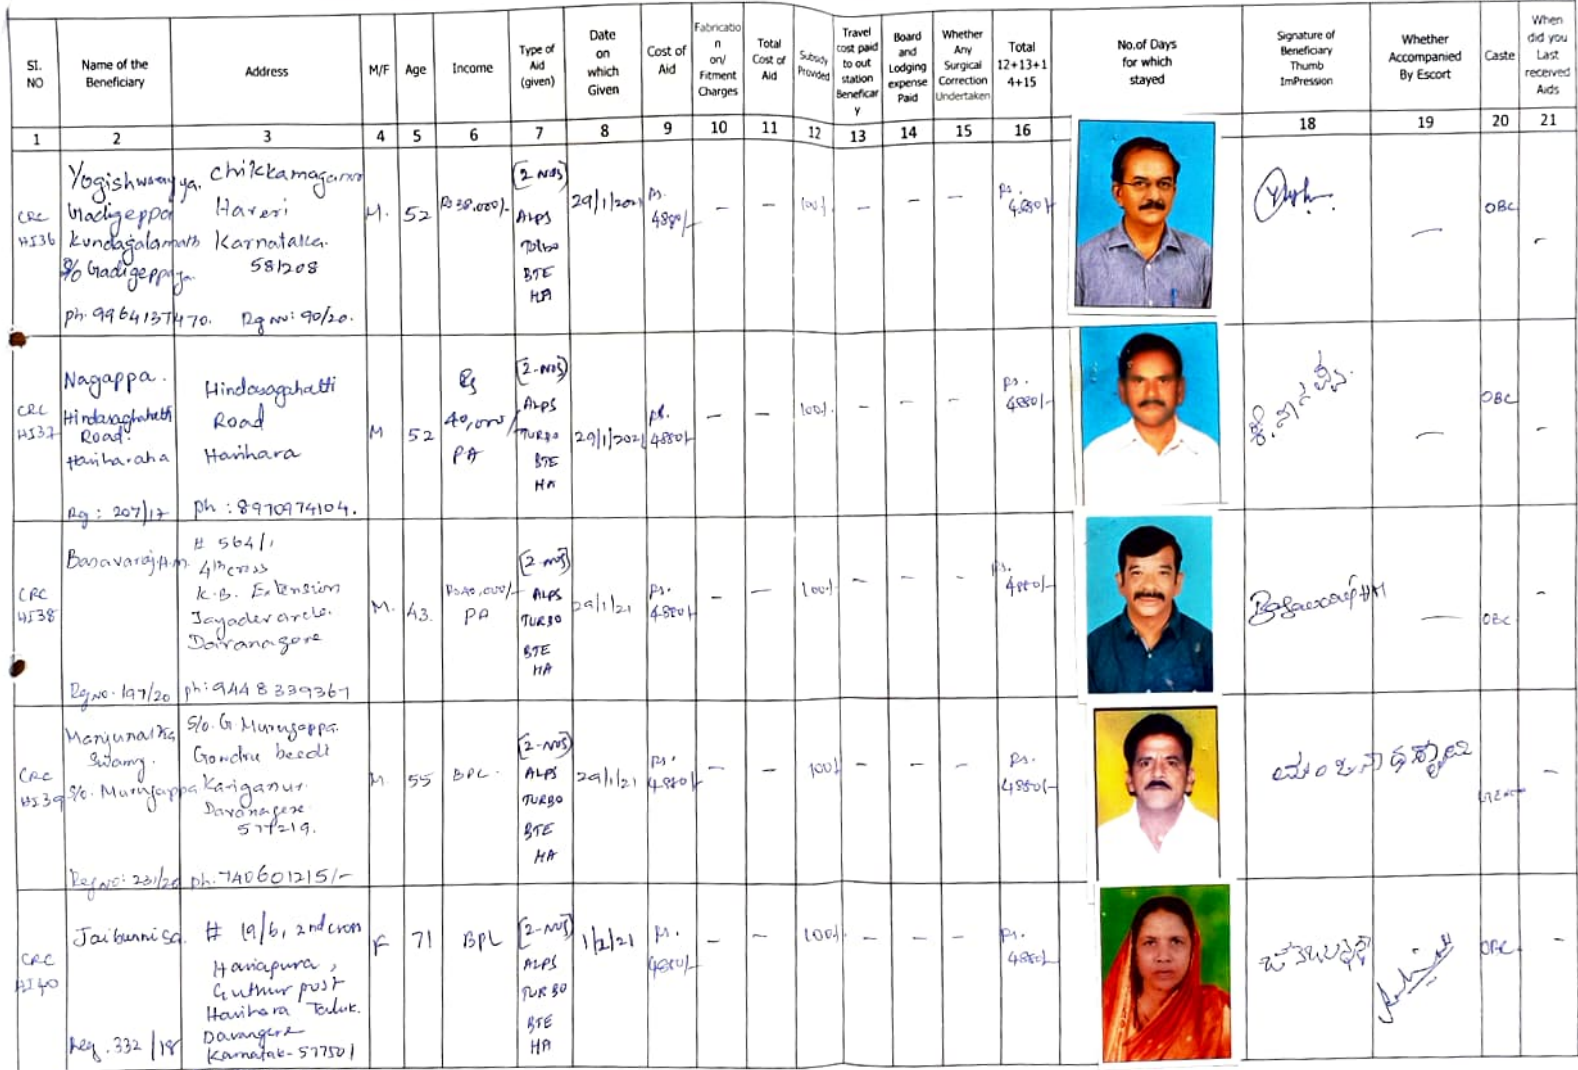 SI. NO
Name of the Beneficiary
Address
M/F
Age
Income
Type of Aid (given)
Date on which Given
Cost of Aid
Fabricatio n on/ Fitment Charges
Total Cost of Aid
Subsidy Provided
Travel cost paid to out station Beneficar y
Board and Lodging expense Paid
Whether Any Surgical Correction Undertaken
Total 12+13+1 4+15
No.of Days for which stayed
Signature of Beneficiary Thumb ImPression
Whether Accompanied By Escort
Caste
When did you Last received Aids
1 2 3 4 5 6 7 8 9 10 11 12 13 14 15 16 18 19 20 21
CRC HI36
Yogishwarayya.
Gadigeppa
Kundagalamath
S/o Gadigeppayya.
Ph. 9964137470. Rg no: 90/20.
Haveri
Karnataka.
581208
M. 52 Rs 38,000/-
[2 NOS]
ALPS
TURBO
BTE
HA
29/1/2021
Rs. 4880/-
– – 100% – – –
Rs. 4880/-
–
OBC
–
CRC HI37
Nagappa.
Hindasaghatti
Road.
Hariharaha
Rg : 207/17
Hindasagahatti
Road
Harihara
Ph : 8970974104.
M 52
Rs 40,000/- PA
[2-NOS]
ALPS
TURBO
BTE
HA
29/1/2021
Rs. 4880/-
– – 100% – – –
Rs. 4880/-
ಕೆ. ನಾಗಪ್ಪ.
–
OBC
–
CRC HI38
Basavaraj H.M.
Reg No. 197/20
# 564/1
4th cross
K.B. Extension
Jayadev circle.
Davanagere
ph: 9448339367
M. 43.
Rs 40,000/- PA
[2-NOS]
ALPS
TURBO
BTE
HA
29/1/21
Rs. 4880/-
– – 100% – – –
Rs. 4880/-
Basavaraj HM
–
OBC
–
CRC HI39
Manjunatha
Swamy.
S/o. Murugappa
Reg No: 231/20
S/o. G. Murugappa.
Gondru beedi
Kariganur.
Davanagere
577219.
ph. 7406012151/-
M. 55 BPL.
[2-NOS]
ALPS
TURBO
BTE
HA
29/1/21
Rs. 4880/-
– – 100% – – –
Rs. 4880/-
ಮಂಜುನಾಥಸ್ವಾಮಿ
–
CRC HI40
Jaibunnisa.
Reg. 332/18
# 19/6, 2nd cross
Harlapura,
Guthur post
Harihara Taluk.
Davangere
Karnatak-577501
F 71 BPL
[2-NOS]
ALPS
TURBO
BTE
HA
1/2/21
Rs. 4880/-
– – 100% – – –
Rs. 4880/-
OBC
–